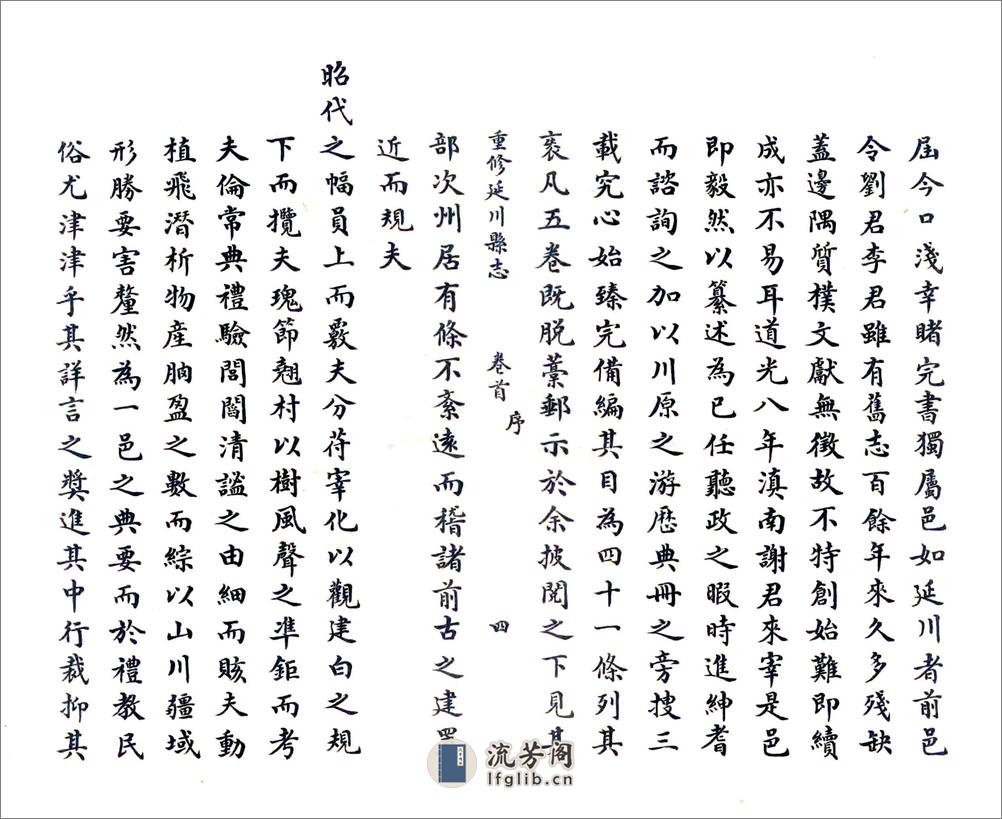 屆今口淺幸睹完書獨屬邑如延川者前邑
令劉君李君雖有舊志百餘年來久多殘缺
蓋邊隅質樸文獻無徵故不特創始難即續
成亦不易耳道光八年滇南謝君來宰是邑
即毅然以纂述為己任聽政之暇時進紳耆
而諮詢之加以川原之游歷典冊之旁搜三
載究心始臻完備編其目為四十一條列其
袠凡五卷既脫藁郵示於余披閱之下見其
重修延川縣志 卷首 序 四
部次州居有條不紊遠而稽諸前古之建置
近而規夫
昭代之幅員上而覈夫分苻宰化以觀建白之規
下而攬夫瑰節翹材以樹風聲之準鉅而考
夫倫常典禮驗閭閻清謐之由細而賅夫動
植飛潛析物產朒盈之數而綜以山川疆域
形勝要害釐然為一邑之典要而於禮教民
俗尤津津乎其詳言之獎進其中行裁抑其
流芳阁
lfglib.cn